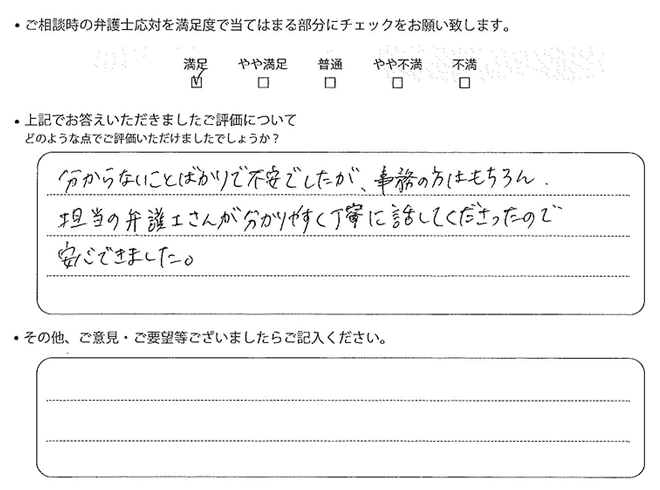 ・ご相談時の弁護士応対を満足度で当てはまる部分にチェックをお願い致します。
満足 やや満足 普通 やや不満 不満
・上記でお答えいただきましたご評価について
どのような点でご評価いただけましたでしょうか？
分からないことばかりで不安でしたが、事務の方はもちろん、
担当の弁護士さんが分かりやすく丁寧に話してくださったので
安心できました。
・その他、ご意見・ご要望等ございましたらご記入ください。